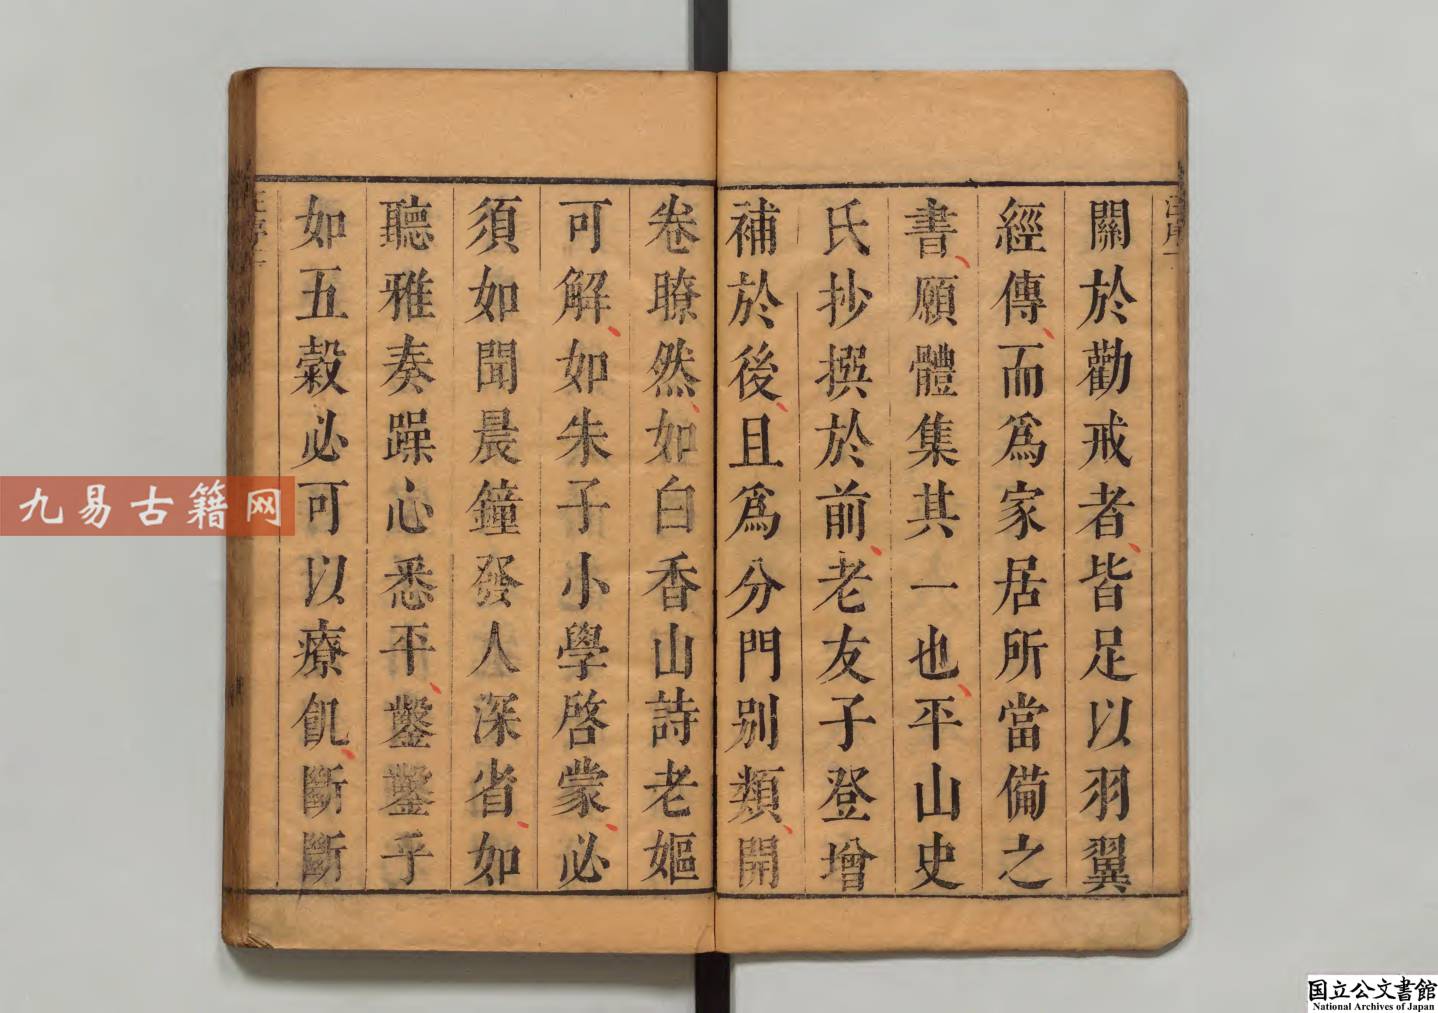 關於勸戒者皆足以羽翼
經傳而為家居所當備之
書願體集其一也平山史
氏抄撰於前老友子登增
補於後且為分門別類開
卷瞭然如白香山詩老嫗
可解如朱子小學啓蒙必
須如聞晨鐘發人深省如
聽雅奏躁心悉平鑿鑿乎
如五穀必可以療飢斷斷
九易古籍网
国立公文書館
National Archives of Japan